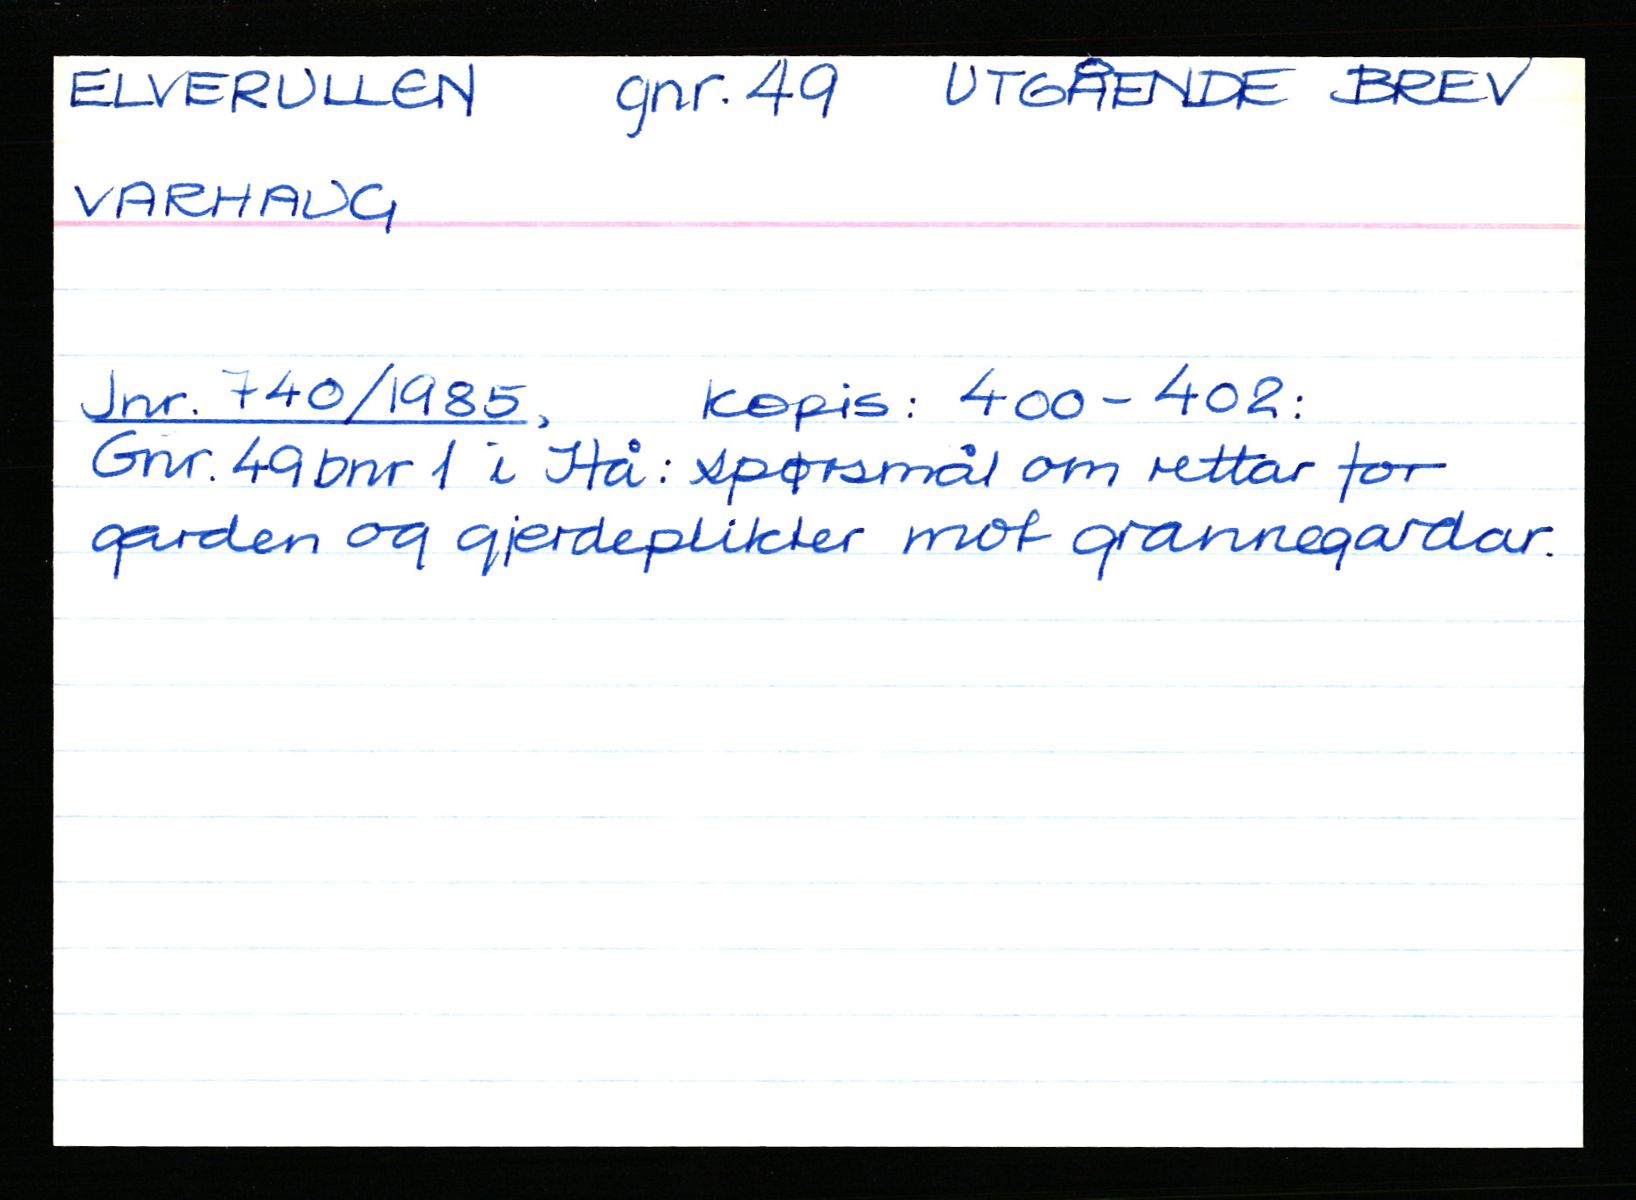 ELVERULLEN gnr. 49 UTGÅENDE BREV
VARHAUG
Jnr. 740/1985, Kopis: 400-402:
Gnr. 49 bnr 1 i Hå: spørsmål om rettar for
garden og gjerdeplikter mot grannegardar.